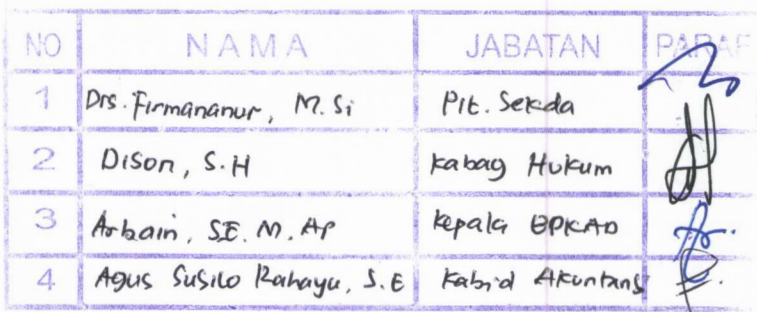 NO NAMA JABATAN PARAF
1 Drs. Firmananur, M. Si Plt. Sekda
2 Dison, S.H Kabag Hukum
3 Arbain, SE. M. AP Kepala BPKAD
4 Agus Susilo Rahayu, S.E Kabid Akuntans